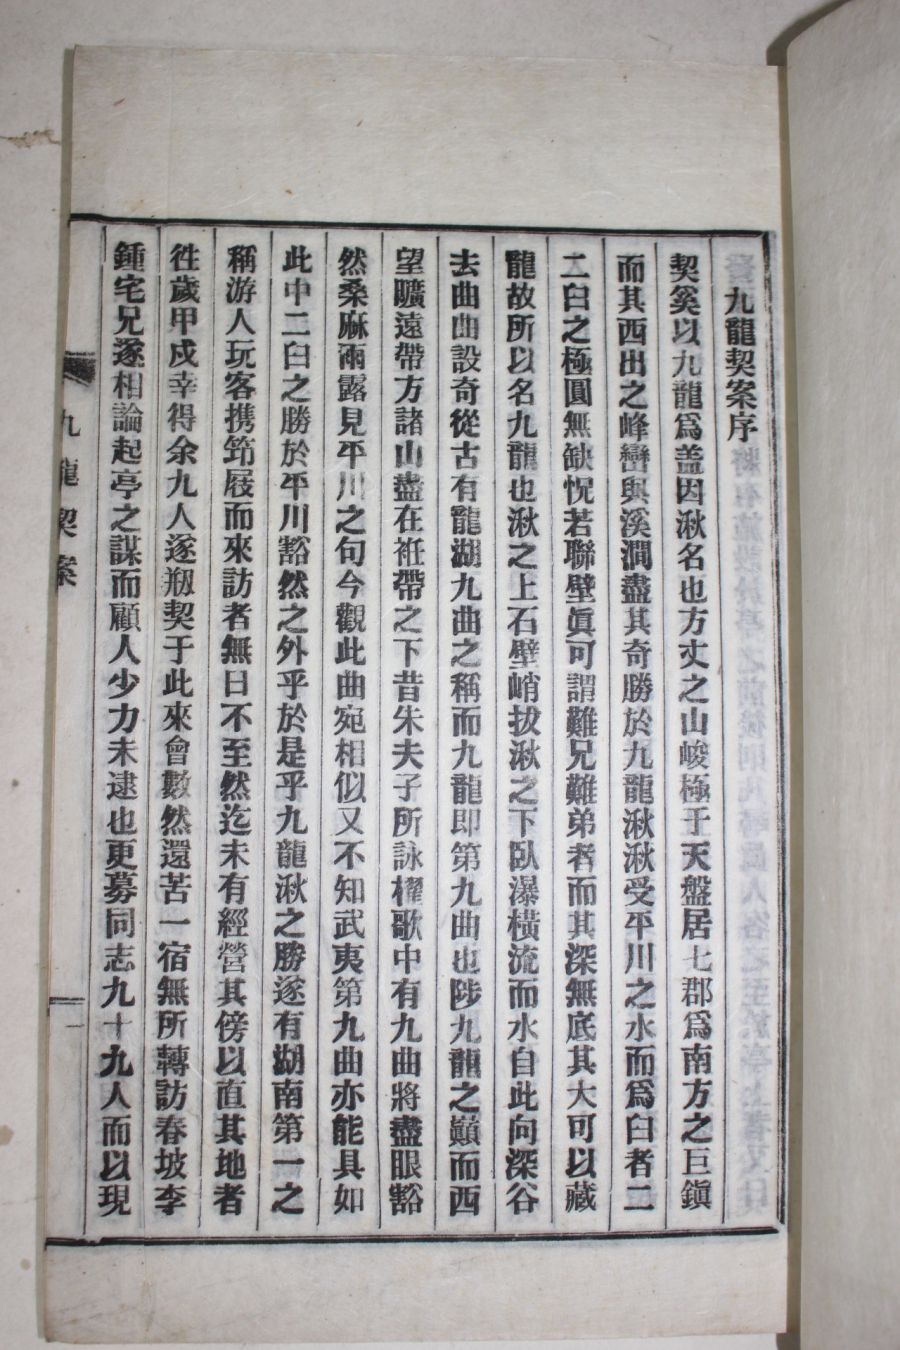 九龍契案序
契奚以九龍爲盖因湫名也方丈之山峻極于天盤居七郡爲南方之巨鎭
而其西出之峰巒與溪澗盡其奇勝於九龍湫湫受平川之水而爲臼者二
二臼之極圓無缺怳若聯壁眞可謂難兄難弟者而其深無底其大可以藏
龍故所以名九龍也湫之上石壁峭拔湫之下臥瀑橫流而水自此向深谷
去曲曲設奇從古有龍湖九曲之稱而九龍即第九曲也陟九龍之巓而西
望曠遠帶方諸山盡在袵帶之下昔朱夫子所詠櫂歌中有九曲將盡眼豁
然桑麻雨露見平川之句今觀此曲宛相似又不知武夷第九曲亦能具如
此中二臼之勝於平川豁然之外乎於是乎九龍湫之勝遂有湖南第一之
稱游人玩客携筇屐而來訪者無日不至然迄未有經營其傍以直其地者
徃歲甲戍幸得余九人遂刱契于此來會數然還苦一宿無所轉訪春坡李
鍾宅兄遂相論起亭之謀而顧人少力未逮也更募同志九十九人而以現
九龍契案
一